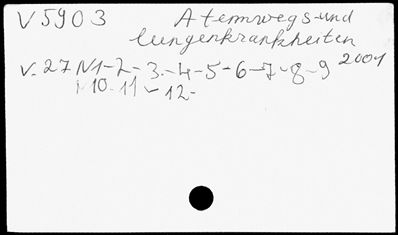 V 5903 Atemwegs-und
lungenkrankheiten
V. 27 N1-2-3-4-5-6-7-8-9 2001
N10-11-12-